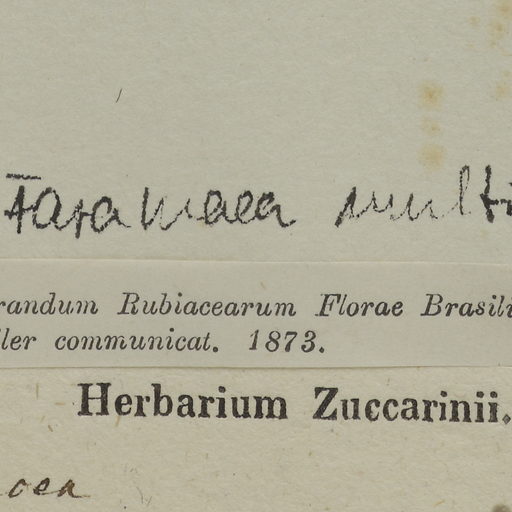 Faramaea multi
randum Rubiacearum Florae Brasili
ller communicat. 1873.
Herbarium Zuccarinii.
cea